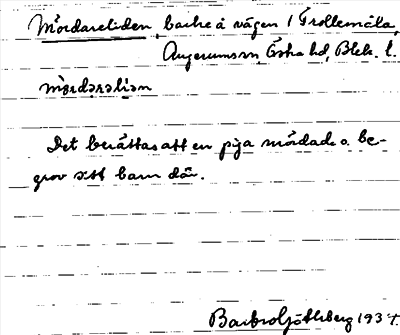 Mördareliden, backe å vägen i Trollemåla,
Augerums sn Östra hd, Blek. l.
mördarəliən
Det berättas att en piga mördade o. be-
grov sitt barn där.
1937.